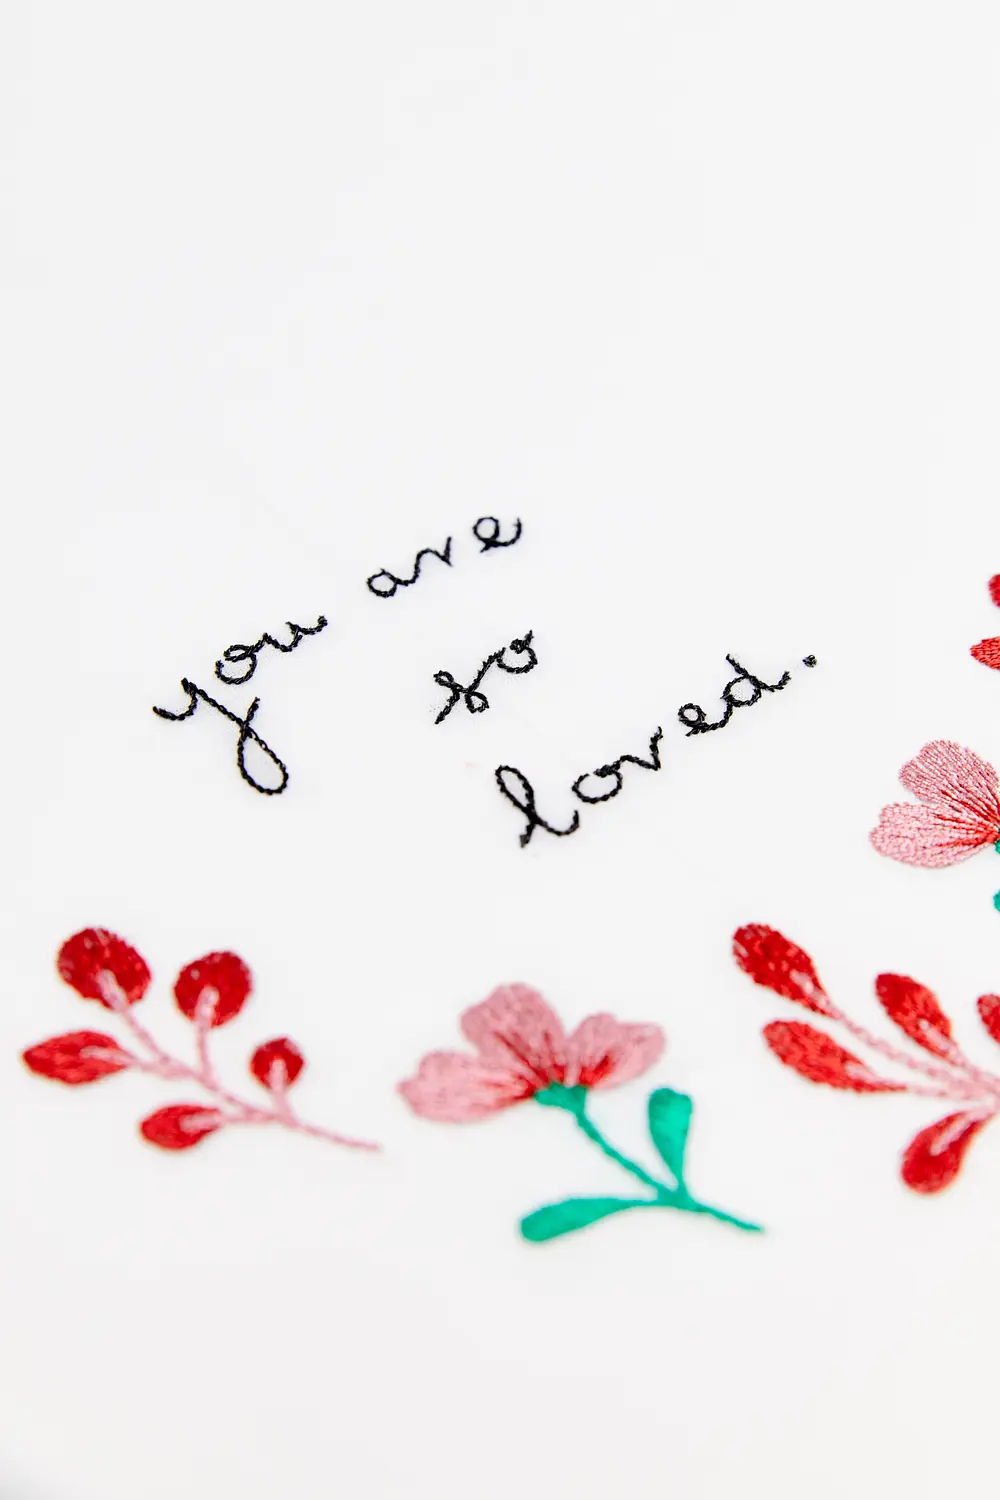 you are
so
loved.